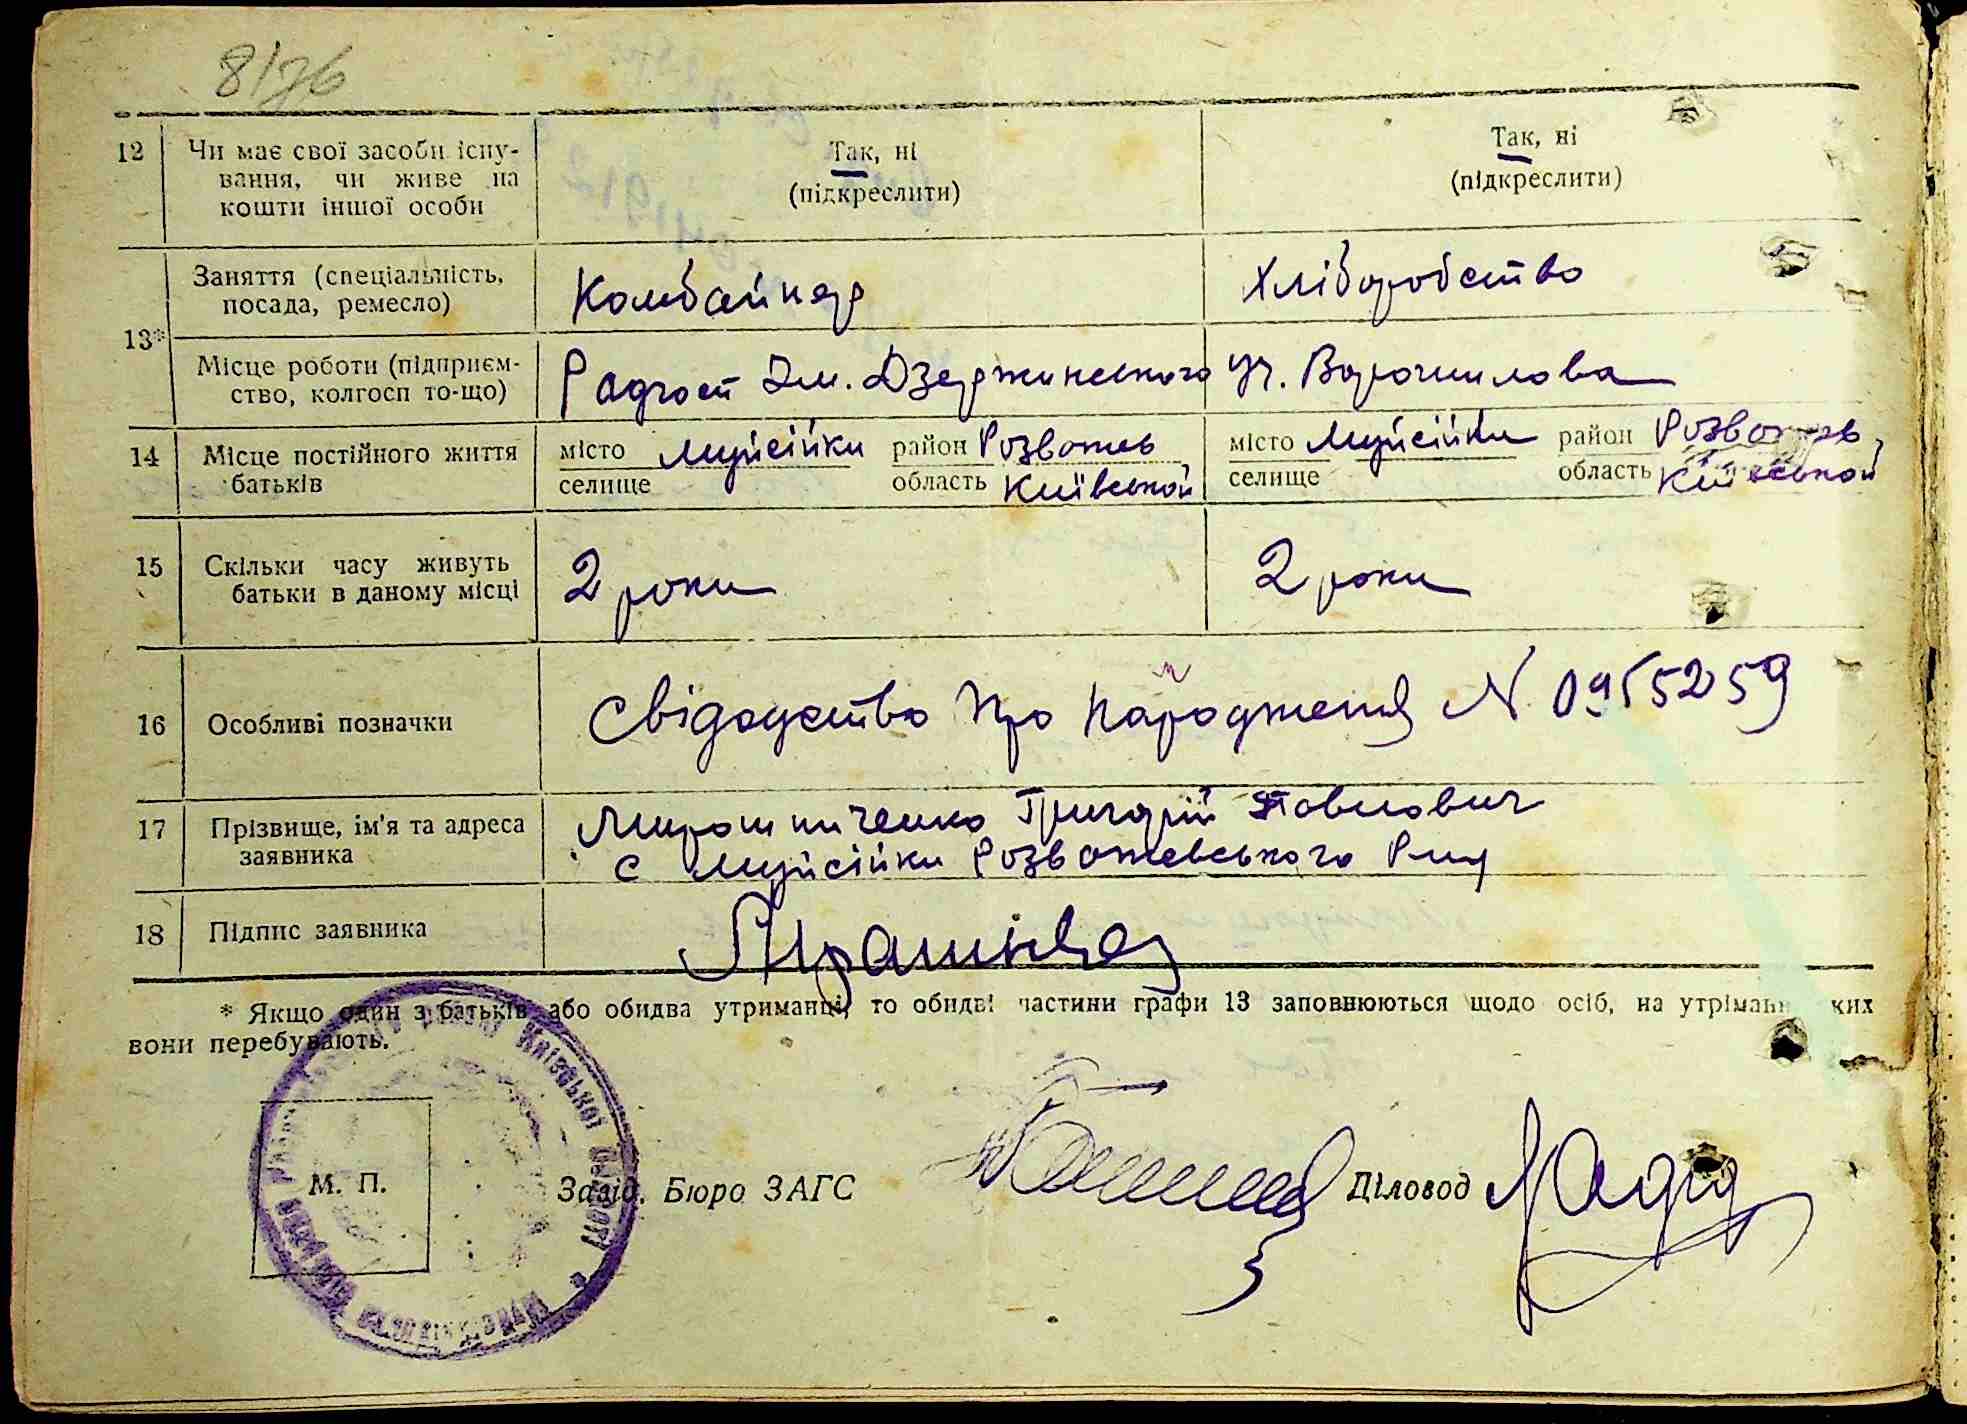 8/76
12 Чи має свої засоби існу-
вання, чи живе на
кошти іншої особи
Так, ні
(підкреслити)
Так, ні
(підкреслити)
13*
Заняття (спеціальність,
посада, ремесло)
Комбайнер
Хліборобство
Місце роботи (підприєм-
ство, колгосп то-що)
Радгосп Дзержинського
Ворошилова
14 Місце постійного життя
батьків
місто Мусійки район Розважев
селище область Київської
місто Мусійки район Розважев
селище область Київської
15 Скільки часу живуть
батьки в даному місці
2 роки
2 роки
16 Особливі позначки
Свідодство про народження N. 0955259
17 Прізвище, ім'я та адреса
заявника
Мирошниченко Григорій Павлович
с Мусійки Розважевського
18 Підпис заявника
* Якщо один з батьків або обидва утриманці, то обидві частини графи 13 заповнюються щодо осіб, на утриманні
ких
вони перебувають.
Київської Області
М. П.
Завід. Бюро ЗАГС
Діловод